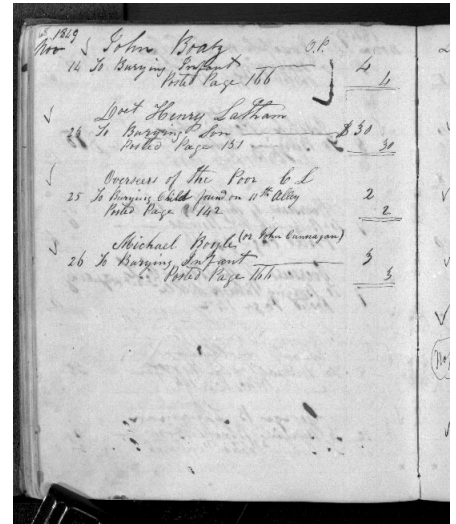 1849
Nov John Boaty O.P.
14 To Burying Infant 4
Posted Page 166 4
Doct Henry Latham
23 To Burying Son $30
Posted Page 151 30
Overseers of the Poor C L
25 To Burying Child found on 11th Alley 2
Posted Page 142 2
Michael Boyle (or John Cunnagan)
26 To Burying Infant 3
Posted Page 166 3